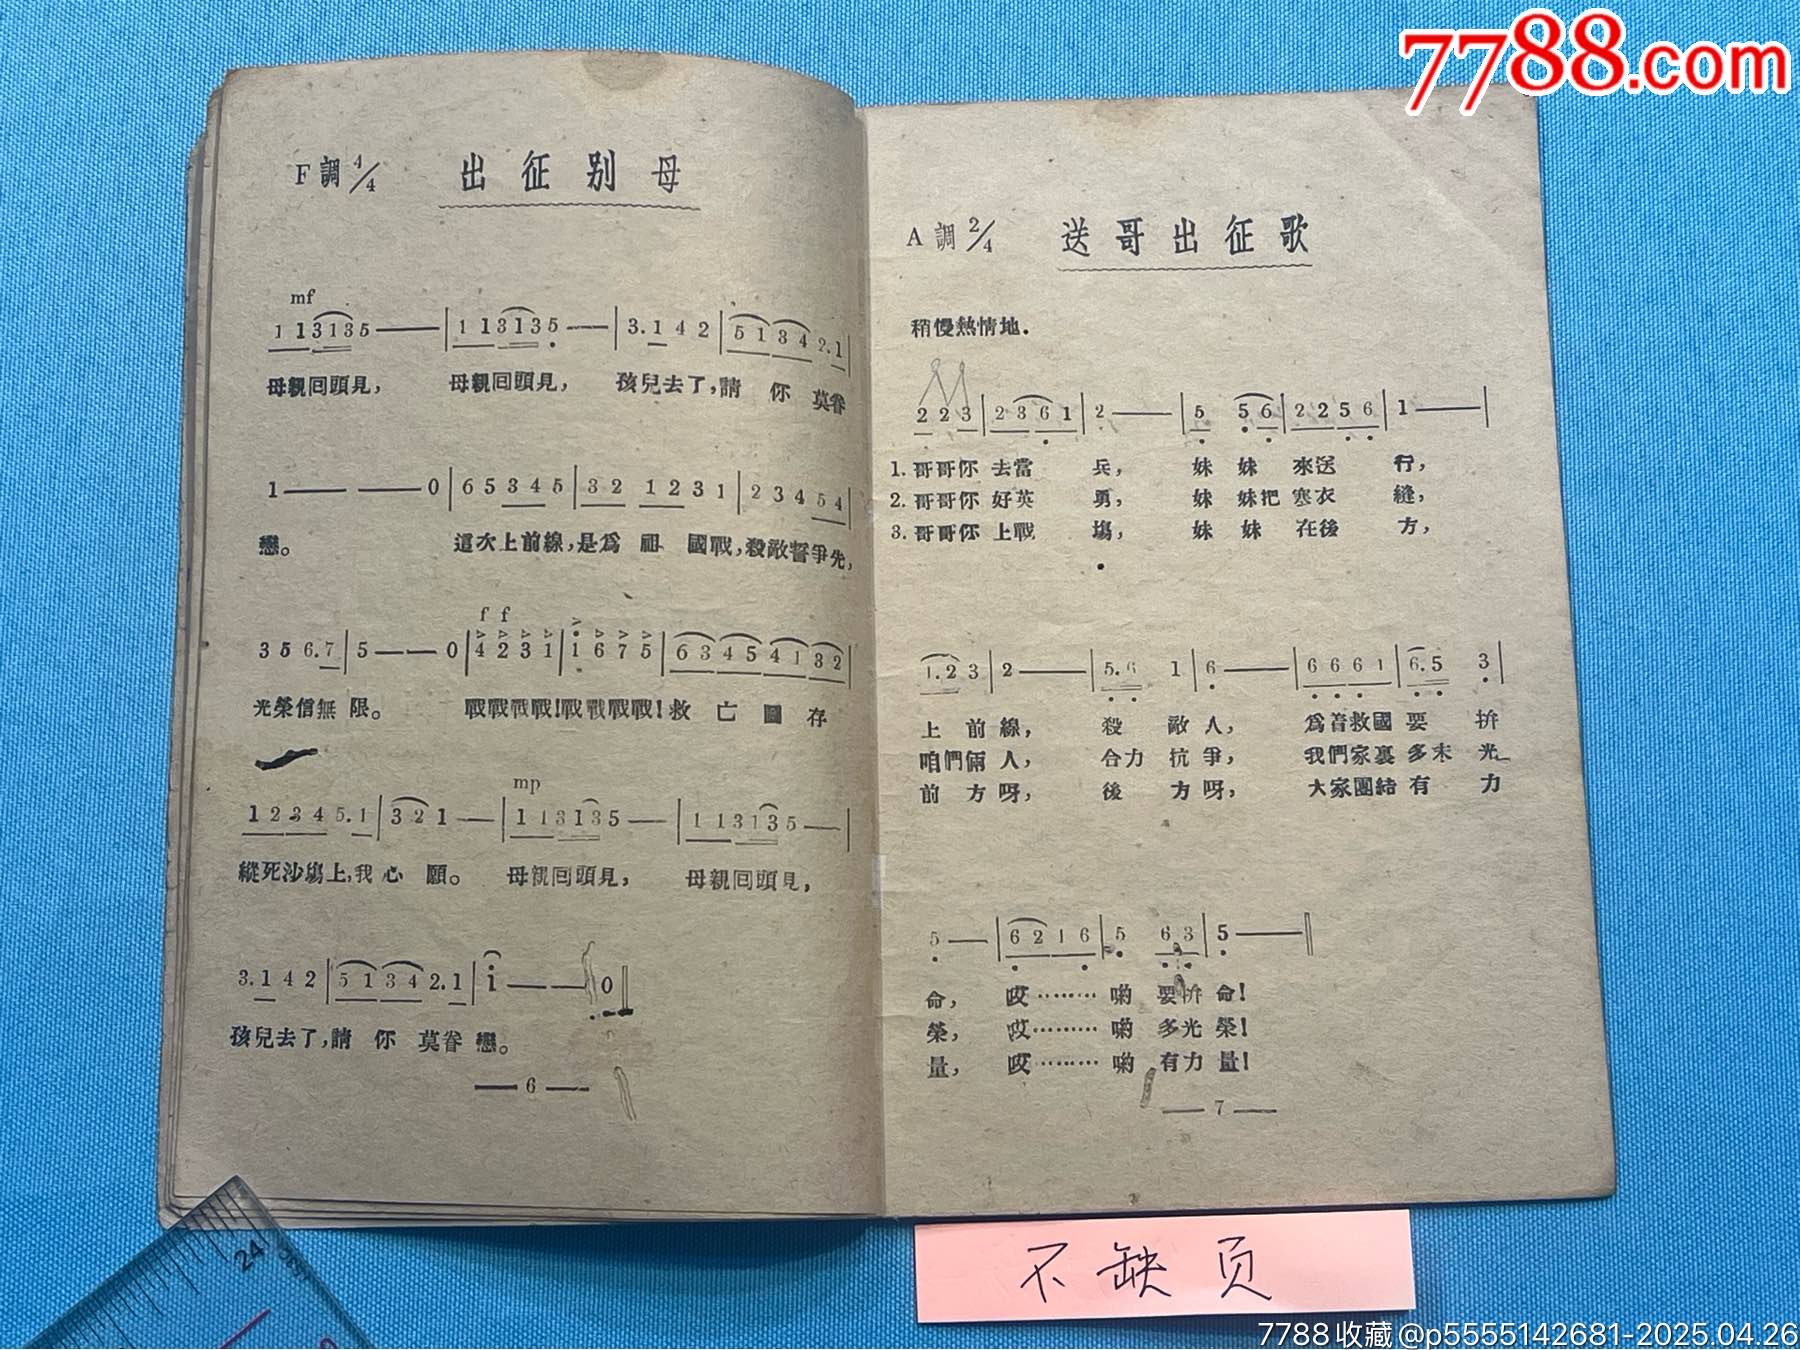 7788.com
F調 4/4 出征别母
mf
1 1 3 1 3 5 —— | 1 1 3 1 3 5 —— | 3. 1 4 2 | 5 1 3 4 2. 1 |
母親囘頭見， 母親囘頭見， 孩兒去了，請 你 莫眷
1 —— —— 0 | 6 5 3 4 5 | 3 2 1 2 3 1 | 2 3 4 5 4 |
戀。 這次上前線，是爲 祖 國戰，殺敵誓爭先，
f f
3 5 6. 7 | 5 —— 0 | 4 2 3 1 | 1 6 7 5 | 6 3 4 5 4 1 3 2 |
光榮信無 限。 戰戰戰戰！戰戰戰戰！救 亡 圖 存
mp
1 2 3 4 5. 1 | 3 2 1 — | 1 1 3 1 3 5 — | 1 1 3 1 3 5 — |
縱死沙塲上，我 心 願。 母親囘頭見， 母親囘頭見，
3. 1 4 2 | 5 1 3 4 2. 1 | i —— 0 ‖
孩兒去了，請 你 莫眷 戀。
—— 6 ——
A 調 2/4 送哥出征歌
稍慢熱情地．
2 2 3 | 2 3 6 1 | 2 —— | 5 5 6 | 2 2 5 6 | 1 —— |
1. 哥哥你 去當 兵， 妹 妹 來送 行，
2. 哥哥你 好英 勇， 妹 妹把 寒衣 縫，
3. 哥哥你 上戰 塲， 妹 妹 在後 方，
1. 2 3 | 2 —— | 5. 6 1 | 6 —— | 6 6 6 1 | 6. 5 3 |
上 前 線， 殺 敵 人， 爲音救國 要 拚
咱們倆 人， 合力 抗 爭， 我們家裏 多末 光
前 方呀， 後 方 呀， 大家團結 有 力
5 — | 6 2 1 6 | 5 6 3 | 5 —— ‖
命， 哎……… 喲 要拚 命！
榮， 哎……… 喲 多光 榮！
量， 哎……… 喲 有力 量！
—— 7 ——
不缺页
24
7788收藏@p5555142681-2025.04.26